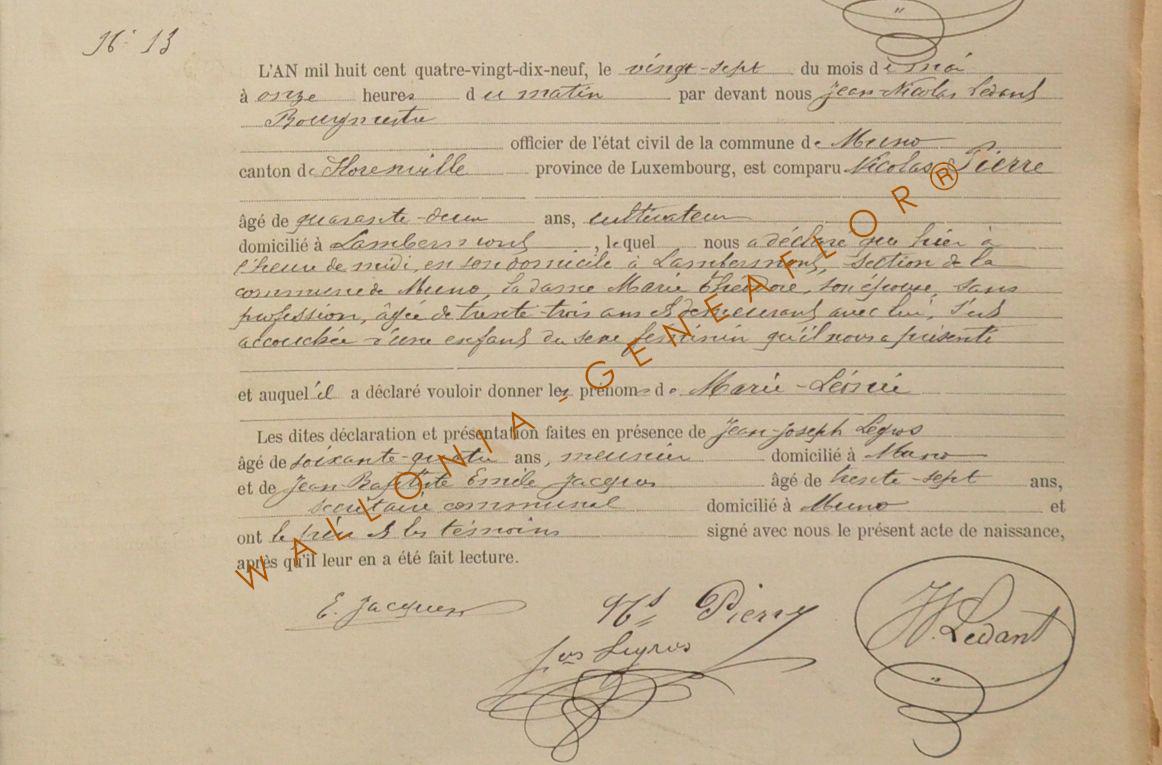 N° 13
L'AN mil huit cent quatre-vingt-dix-neuf, le vingt-sept du mois de mai
à onze heures du matin par devant nous Jean-Nicolas Ledant
Bourgmestre
officier de l'état civil de la commune de Muno
canton de Florenville province de Luxembourg, est comparu Nicolas Pierre
âgé de quarante-deux ans, cultivateur
domicilié à Lambermont, lequel nous a déclaré que hier à
l'heure de midi, en son domicile à Lambermont, section de la
commune de Muno, la dame Marie Théodore, son épouse, sans
profession, âgée de trente-trois ans et demeurant avec lui, s'est
accouchée d'une enfant du sexe féminin qu'il nous a présenté
et auquel il a déclaré vouloir donner les prénoms de Marie-Léonie
Les dites déclaration et présentation faites en présence de Jean-Joseph Legros
âgé de soixante-quatre ans, meunier domicilié à Muno
et de Jean Baptiste Emile Jacques âgé de trente-sept ans,
secrétaire communal domicilié à Muno et
ont le père et les témoins signé avec nous le présent acte de naissance,
après qu'il leur en a été fait lecture.
E. Jacques Ns Pierre JN. Ledant
Jos Legros
WALLONIA - GENEAFLOR®